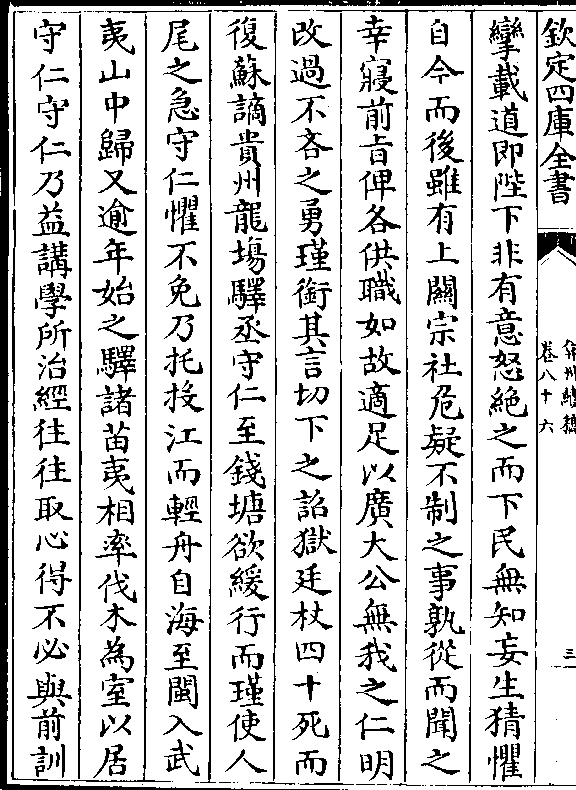 欽定四庫全書
弇州續稿
卷八十六
三
攣載道即陛下非有意怒絶之而下民無知妄生猜懼
自今而後雖有上關宗社危疑不制之事孰從而聞之
幸寢前旨俾各供職如故適足以廣大公無我之仁明
改過不吝之勇瑾銜其言切下之詔獄廷杖四十死而
復蘇謫貴州龍塲驛丞守仁至錢塘欲緩行而瑾使人
尾之急守仁懼不免乃托投江而輕舟自海至閩入武
夷山中歸又逾年始之驛諸苗夷相率伐木為室以居
守仁守仁乃益講學所治經往往取心得不必與前訓